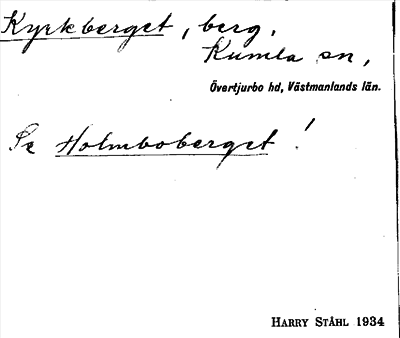 Kyrkberget, berg.
Kumla sn,
Övertjurbo hd, Västmanlands län.
Se Holmboberget!
HARRY STÅHL 1934